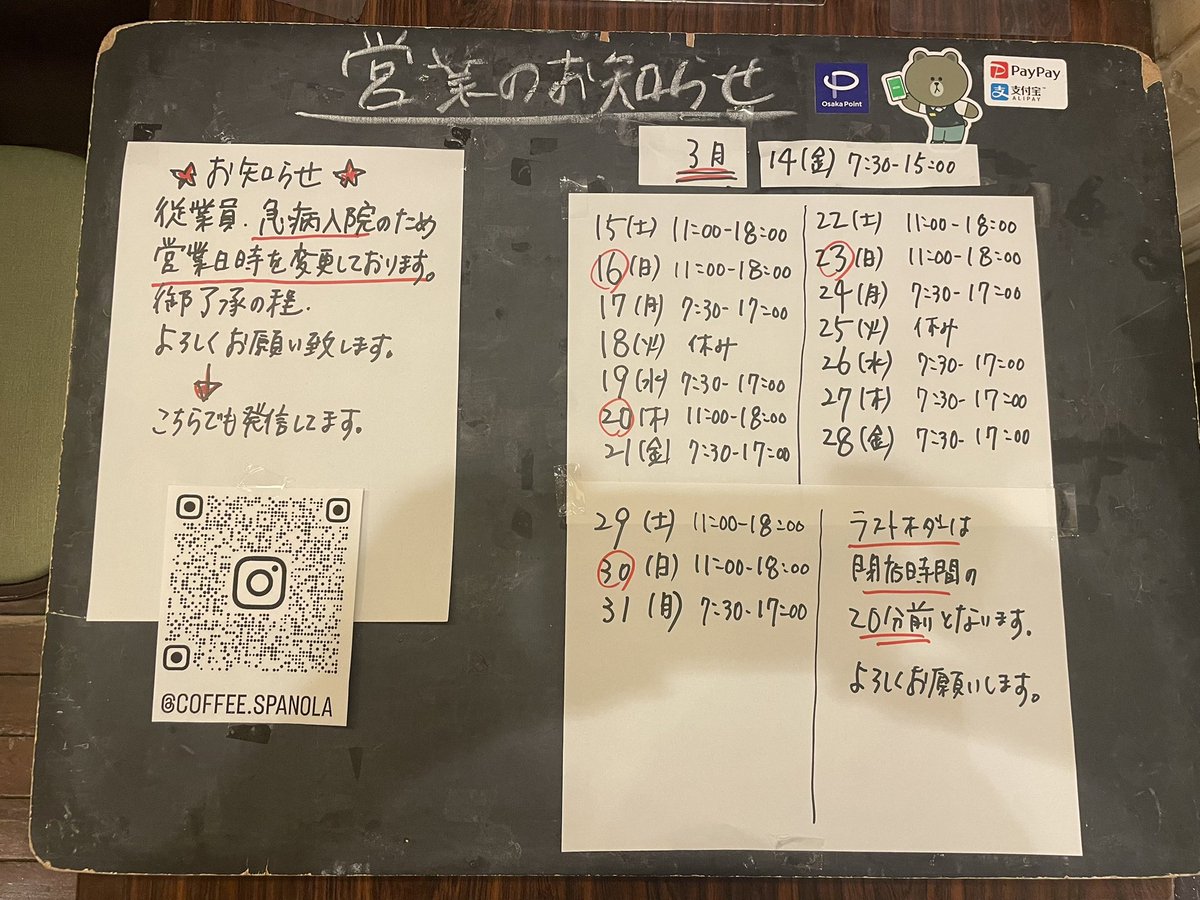 営業のお知らせ
Osaka Point
PayPay
支付宝™
ALIPAY
★お知らせ★
従業員.急病入院のため
営業日時を変更しております。
御了承の程.
よろしくお願い致します。
↓
こちらでも発信してます。
@COFFEE.SPANOLA
3月
14(金) 7:30-15:00
15(土) 11:00-18:00
16(日) 11:00-18:00
17(月) 7:30-17:00
18(火) 休み
19(水) 7:30-17:00
20(木) 11:00-18:00
21(金) 7:30-17:00
22(土) 11:00-18:00
23(日) 11:00-18:00
24(月) 7:30-17:00
25(火) 休み
26(水) 7:30-17:00
27(木) 7:30-17:00
28(金) 7:30-17:00
29(土) 11:00-18:00
30(日) 11:00-18:00
31(月) 7:30-17:00
ラストオダーは
閉店時間の
20分前となります。
よろしくお願いします。